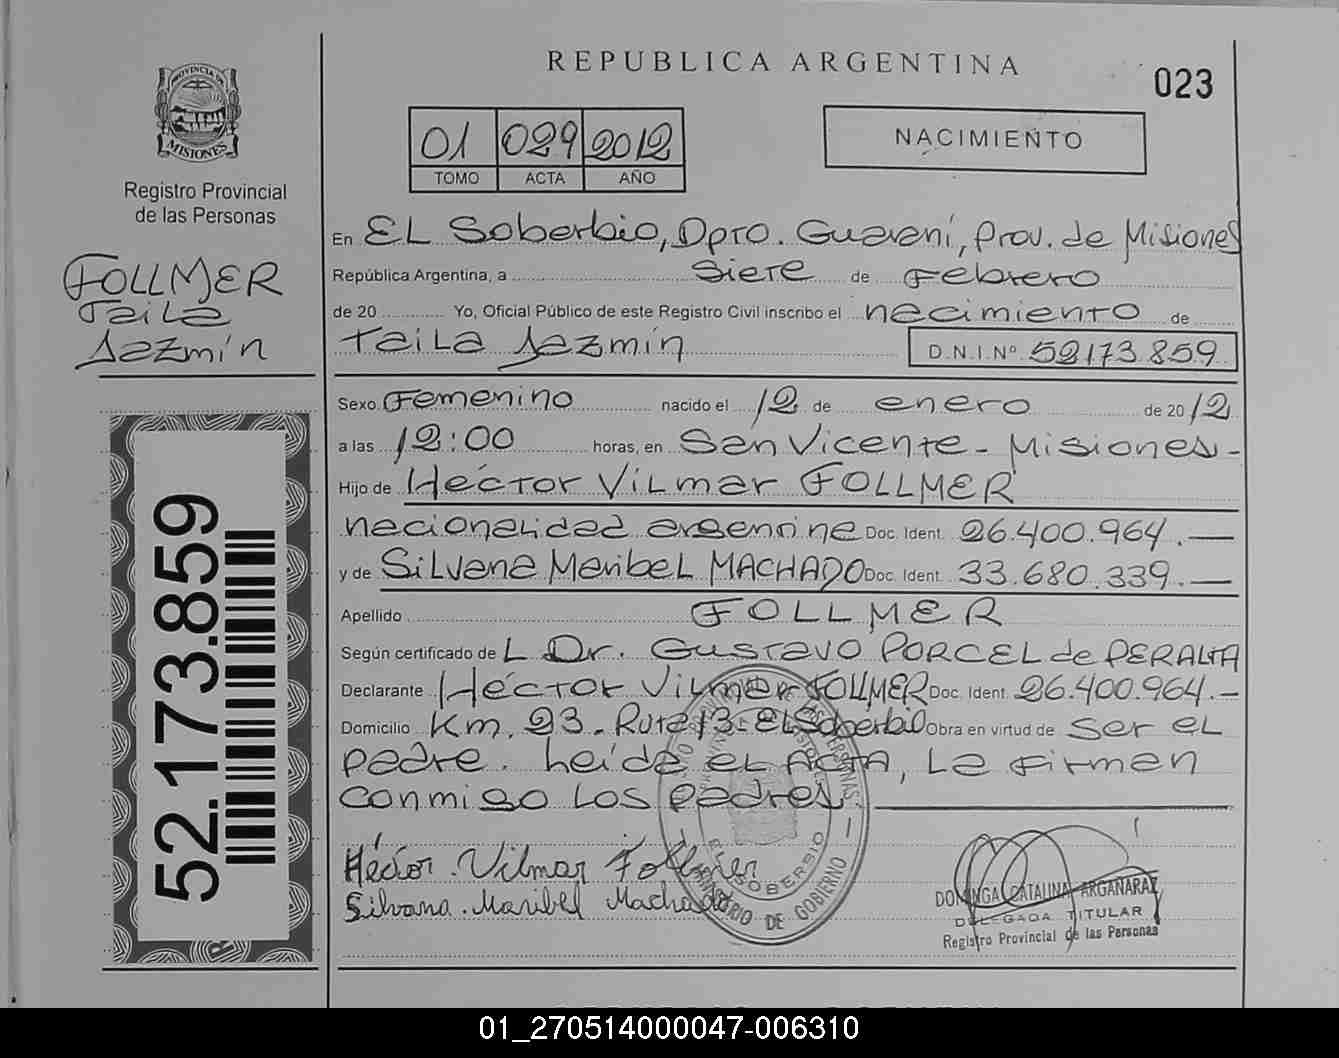 REPUBLICA ARGENTINA
023
PROVINCIA DE
MISIONES
Registro Provincial
de las Personas
01 029 2012
TOMO ACTA AÑO
NACIMIENTO
FOLLMER
Taila
Jazmín
En EL Soberbio, Dpto. Guaraní, Prov. de Misiones
República Argentina, a siete de Febrero
de 20 Yo, Oficial Público de este Registro Civil inscribo el nacimiento de
Taila Jazmín D.N.I.Nº 52173.859
Sexo Femenino nacido el 12 de enero de 2012
a las 12:00 horas, en San Vicente - Misiones -
Hijo de Héctor Vilmar FOLLMER
nacionalidad argentina Doc. Ident. 26.400.964. —
y de Silvana Maribel MACHADO Doc. Ident. 33.680.339. —
Apellido FOLLMER
Según certificado de L Dr. Gustavo PORCEL de PERALTA
Declarante Héctor Vilmar FOLLMER Doc. Ident. 26.400.964. -
Domicilio Km. 23. Ruta 13 - El Soberbio Obra en virtud de ser el
padre. Leída el ACTA, la firman
conmigo los padres.
52.173.859
Héctor. Vilmar Follmer
Silvana. Maribel Machado
EL SOBERBIO
MINISTERIO DE GOBIERNO
DOMINGA CATALINA ARGAÑARAZ
DELEGADA TITULAR
Registro Provincial de las Personas
01_270514000047-006310